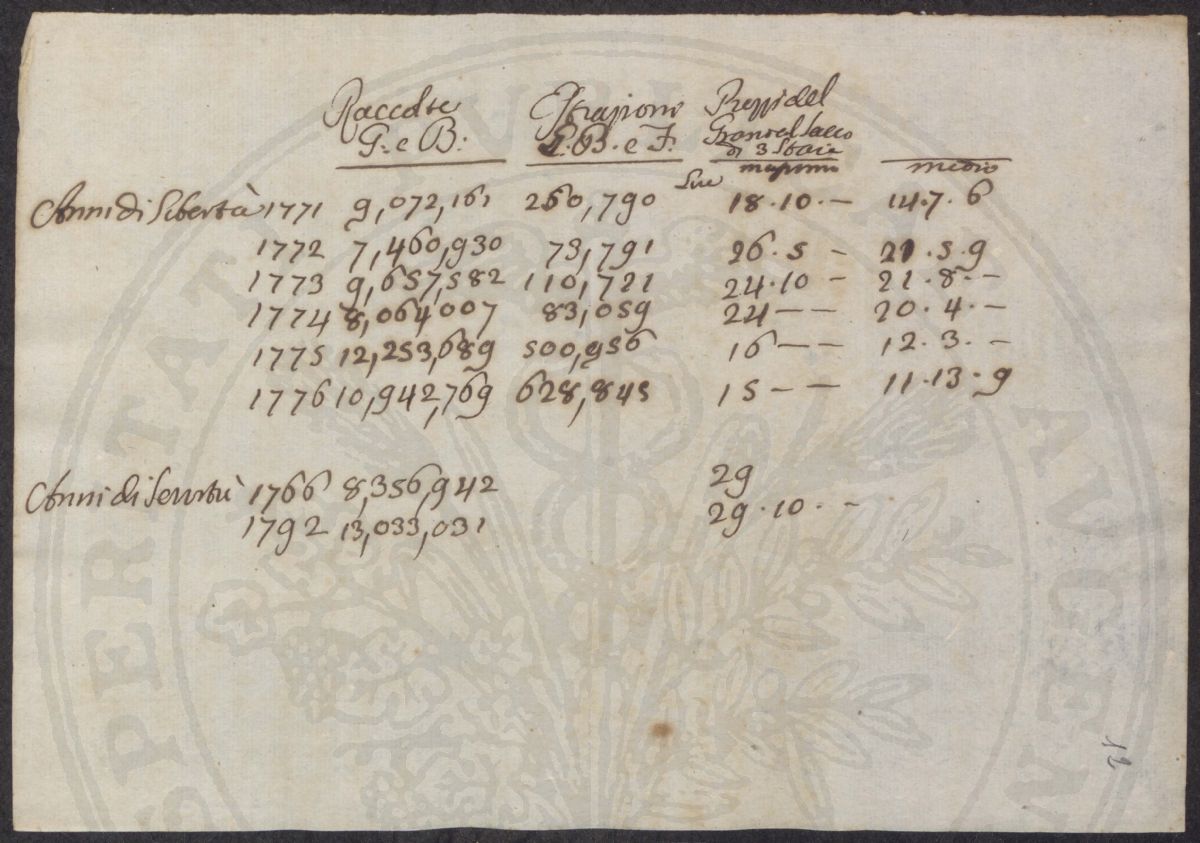 Raccolte Estrazione Prezzi del
G. e B. G. B. e F. Grano al Sacco
di 3 Staia
Lire massimo medio
Anni di Libertà 1771 9,072,161 260,790 18.10.— 14.7.6
1772 7,460,930 73,791 26.5 — 21.5.9
1773 9,657,582 110,721 24.10 — 21.8.—
1774 8,064,007 83,059 24 — — 20.4.—
1775 12,253,689 500,956 16 — — 12.3.—
1776 10,942,769 628,845 15 — — 11.13.9
Anni di Servitù 1766 8,356,942 29
1792 13,033,031 29.10.—
12